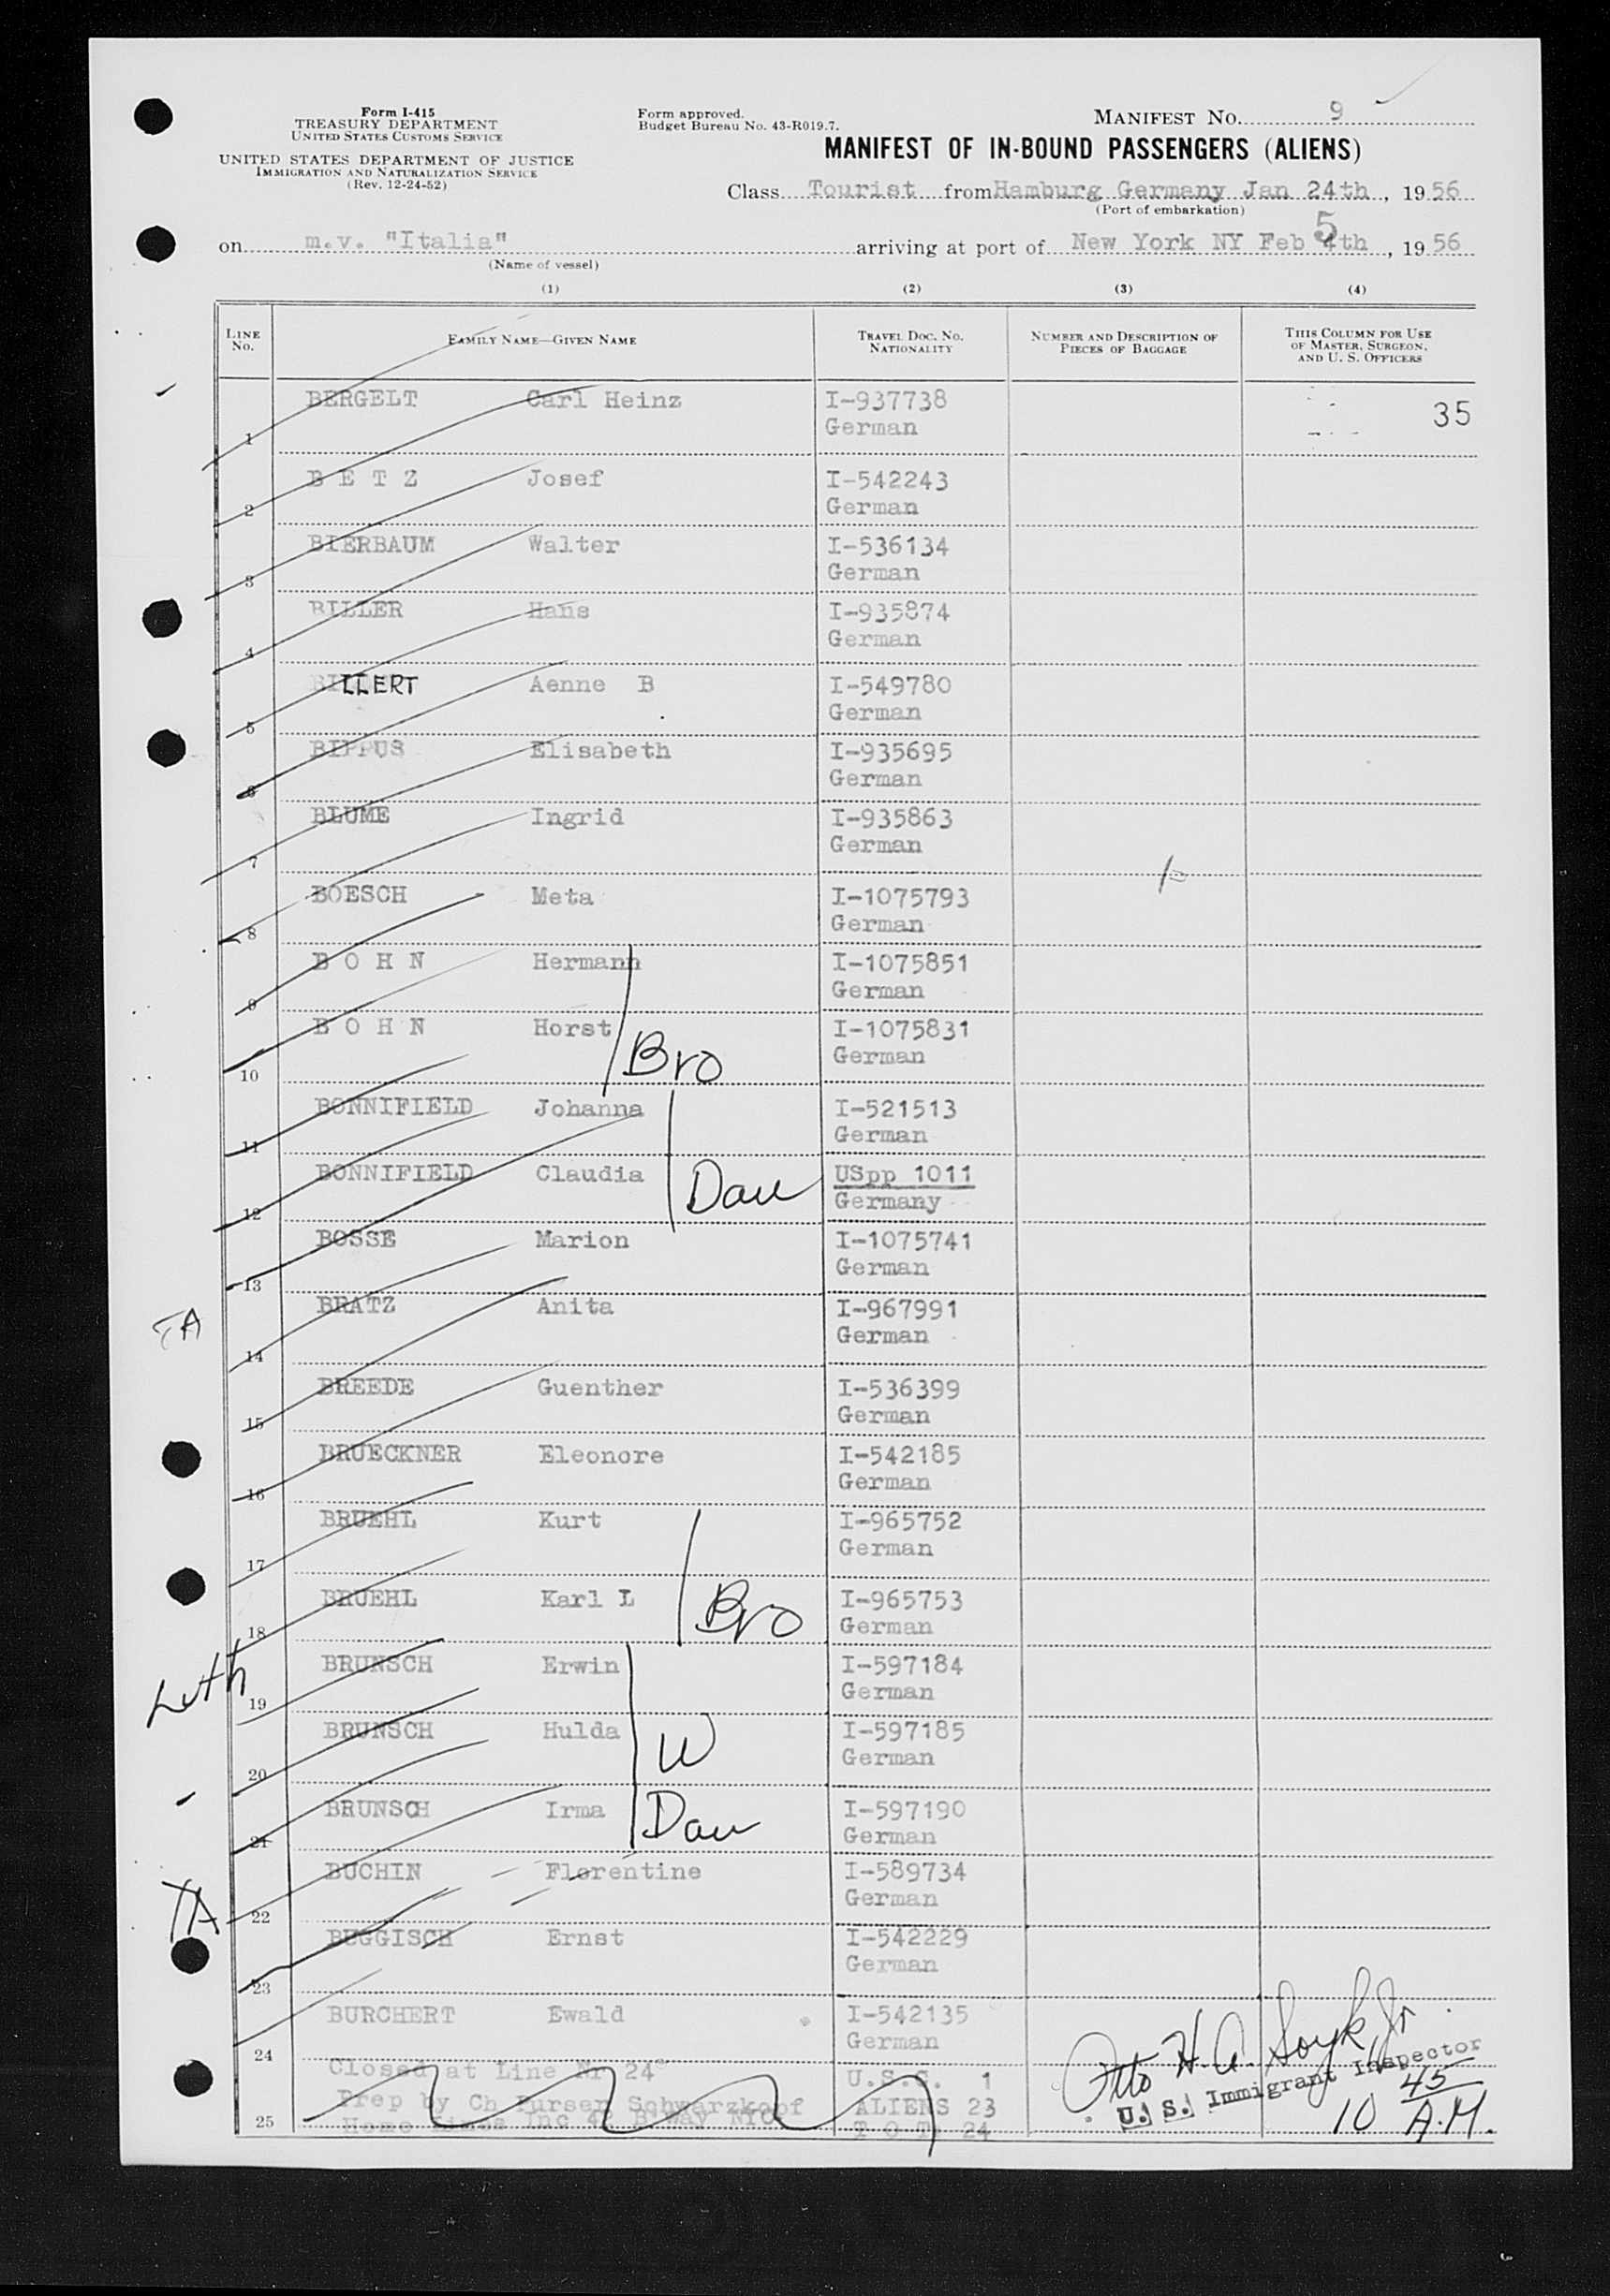 Form I-415
TREASURY DEPARTMENT
UNITED STATES CUSTOMS SERVICE
UNITED STATES DEPARTMENT OF JUSTICE
IMMIGRATION AND NATURALIZATION SERVICE
(Rev. 12-24-52)
Form approved.
Budget Bureau No. 43-R019.7.
MANIFEST NO. 9
MANIFEST OF IN-BOUND PASSENGERS (ALIENS)
Class Tourist from Hamburg Germany Jan 24th, 1956
(Port of embarkation)
on m.v. "Italia" arriving at port of New York NY Feb 5 4th, 1956
(Name of vessel)
(1) (2) (3) (4)
LINE NO. FAMILY NAME—GIVEN NAME TRAVEL DOC. NO. NATIONALITY NUMBER AND DESCRIPTION OF PIECES OF BAGGAGE THIS COLUMN FOR USE OF MASTER, SURGEON, AND U. S. OFFICERS
1 BERGELT Carl Heinz I-937738 35
German
2 B E T Z Josef I-542243
German
3 BIERBAUM Walter I-536134
German
4 BILLER Hans I-935874
German
5 BILLERT Aenne B I-549780
German
6 BIPPUS Elisabeth I-935695
German
7 BLUME Ingrid I-935863
German
8 BOESCH Meta I-1075793
German
9 B O H N Hermann I-1075851
German
10 B O H N Horst Bro I-1075831
German
11 BONNIFIELD Johanna I-521513
German
12 BONNIFIELD Claudia Dau USpp 1011
Germany
13 BOSSE Marion I-1075741
German
TA
14 BRATZ Anita I-967991
German
15 BREEDE Guenther I-536399
German
16 BRUECKNER Eleonore I-542185
German
17 BRUEHL Kurt I-965752
German
18 BRUEHL Karl L Bro I-965753
German
Luth
19 BRUNSCH Erwin I-597184
German
20 BRUNSCH Hulda W I-597185
German
21 BRUNSCH Irma Dau I-597190
German
TA
22 BUCHIN Florentine I-589734
German
23 BUGGISCH Ernst I-542229
German
24 BURCHERT Ewald I-542135
German
Closed at Line Nr 24 U.S.C. 1
Prep by Ch Purser Schwarzkopf ALIENS 23
25 Home Lines Inc 42 B'way NYC T O T. 24
Otto H. A. Soyk, Jr
U. S. Immigrant Inspector
10 45 A.M.